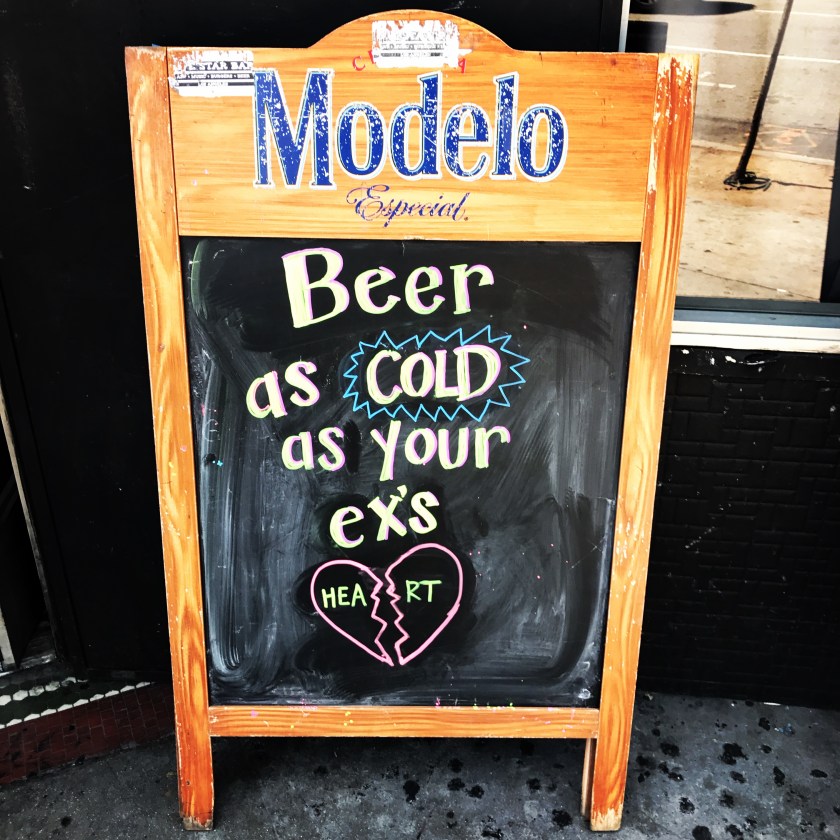 Modelo
Especial.
Beer
as COLD
as your
ex's
HEA RT